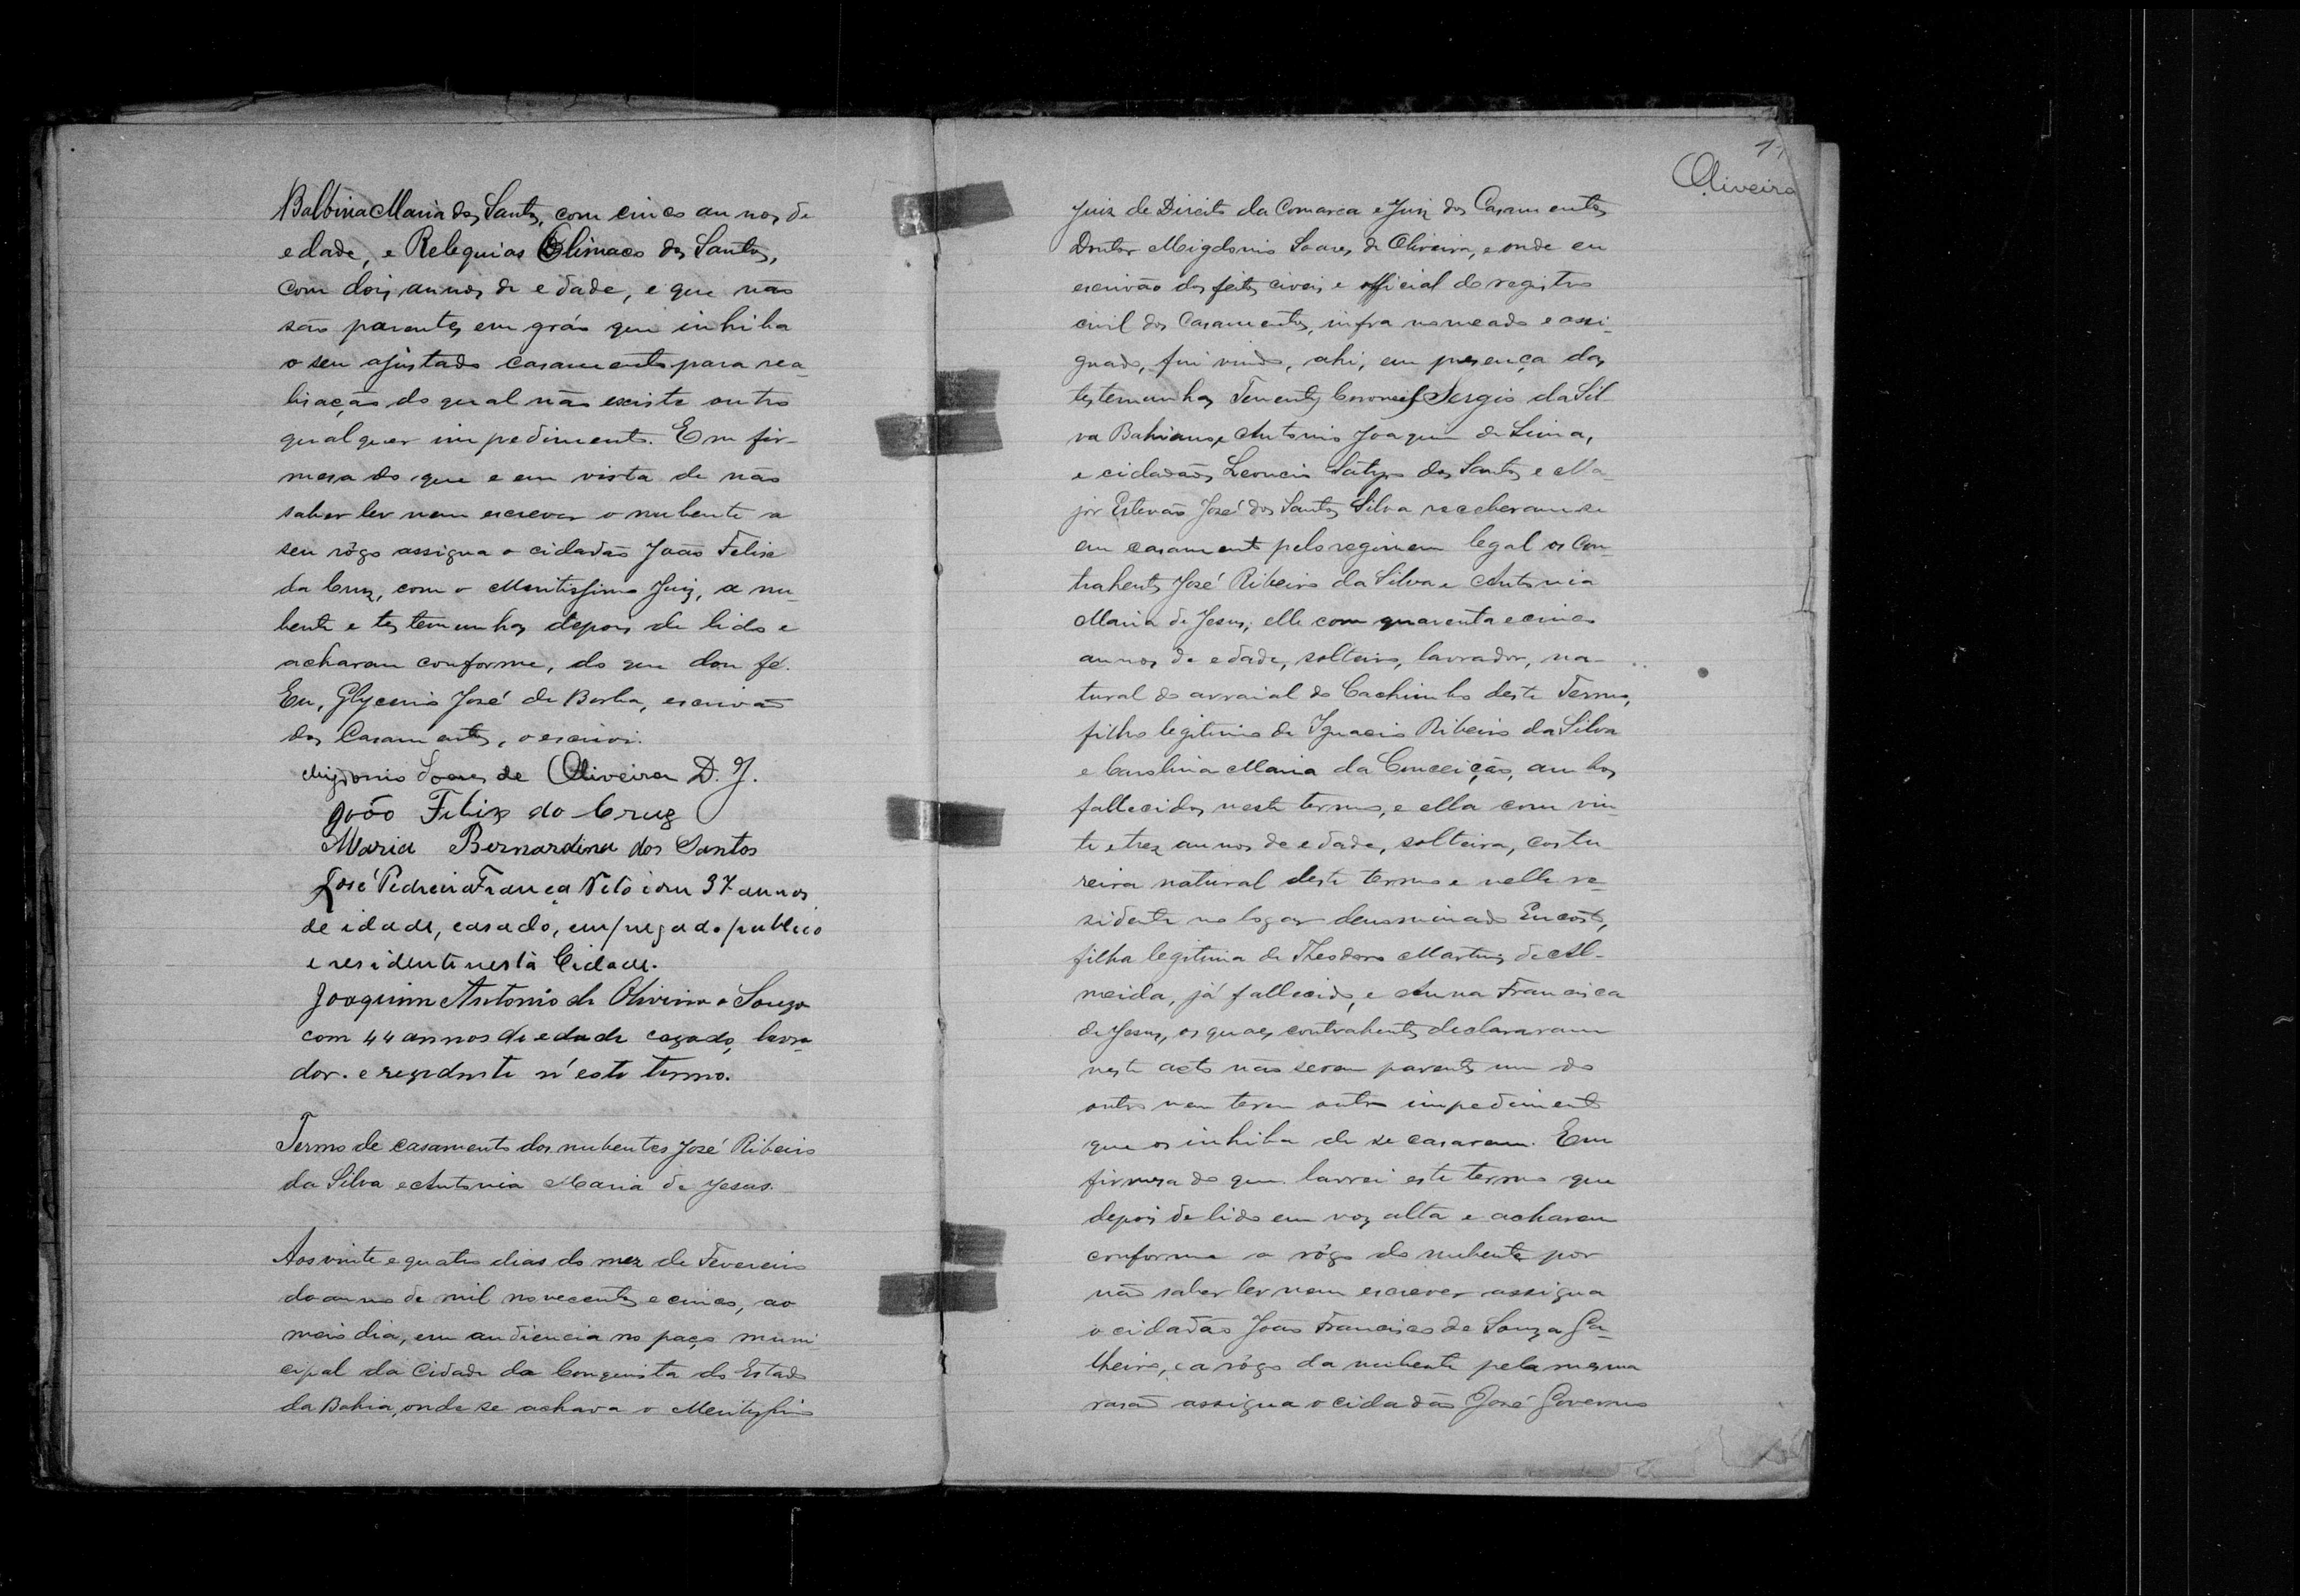 Balbina Maria dos Santos, com cinco annos de
edade, e Reliquias Climaco dos Santos,
com dois annos de edade, e que não
são parentes em gráo que inhiba
o seu ajustado casamento para rea-
lisação do qual não existe outro
qualquer impedimento. Em fir-
mesa do que e em vista de não
saber ler nem escrever o nubente a
seu rôgo assigna o cidadão João Felix
da Cruz, com o Meritissimo Juiz, a nu-
bente e testemunhas depois de lido e
acharam conforme, do que dou fé.
Eu, Glycerio José de Borba, escrivão
dos Casamentos, o escrevi.
Migdonio Soares de Oliveira D. J.
João Felix da Cruz
Maria Bernardina dos Santos
José Pedreira França Neto com 37 annos
de idade, casado, empregado publico
e residente nesta Cidade.
Joaquim Antonio de Oliveira e Souza
com 44 annos de edade cazado, lavra-
dor. e rezidente n'este termo.
Termo de casamento dos nubentes José Ribeiro
da Silva e Antonia Maria de Jesus.
Aos vinte e quatro dias do mez de Fevereiro
do anno de mil novecentos e cinco, ao
meio dia, em audiencia no paço muni-
cipal da Cidade da Conquista do Estado
da Bahia, onde se achava o Meritissimo
Oliveira
Juiz de Direito da Comarca e Juiz dos Casamentos
Doutor Migdonio Soares de Oliveira, e onde eu
escrivão dos feitos civeis e official do registro
civil dos Casamentos, infra nomeado e assi-
gnado, fui vindo, ahi, em presença das
testemunhas Tenentes Coroneis Sergio da Sil
va Bahiano, e Antonio Joaquim de Lima,
e cidadãos Leoncio Sátyro dos Santos e Ma-
jor Estevão José dos Santos Silva receberam-se
em casamento pelo regimem legal os Con-
trahentes José Ribeiro da Silva e Antonia
Maria de Jesus; elle com quarenta e cinco
annos de edade, solteiro, lavrador, na-
tural do arraial do Cachimbo deste Termo,
filho legitimo de Ignacio Ribeiro da Silva
e Carolina Maria da Conceição, ambos
fallecidos neste termo, e ella com vin-
te e trez annos de edade, solteira, costu
reira natural deste termo e nelle re-
sidente no logar denominado Encosto,
filha legitima de Theodoro Martins de Al-
meida, já fallecido, e Anna Francisca
de Jesus, os quaes contrahentes declararam
neste acto não serem parentes um do
outro nem terem outro impedimento
que os inhiba de se casaram. Em
firmesa do que lavrei este termo que
depois de lido em voz alta e acharam
conforme a rôgo do nubente por
não saber ler nem escrever assigna
o cidadão João Francisco de Souza Ga-
lheiro, e a rôgo da nubente pela mesma
rasão assigna o cidadão José Governo